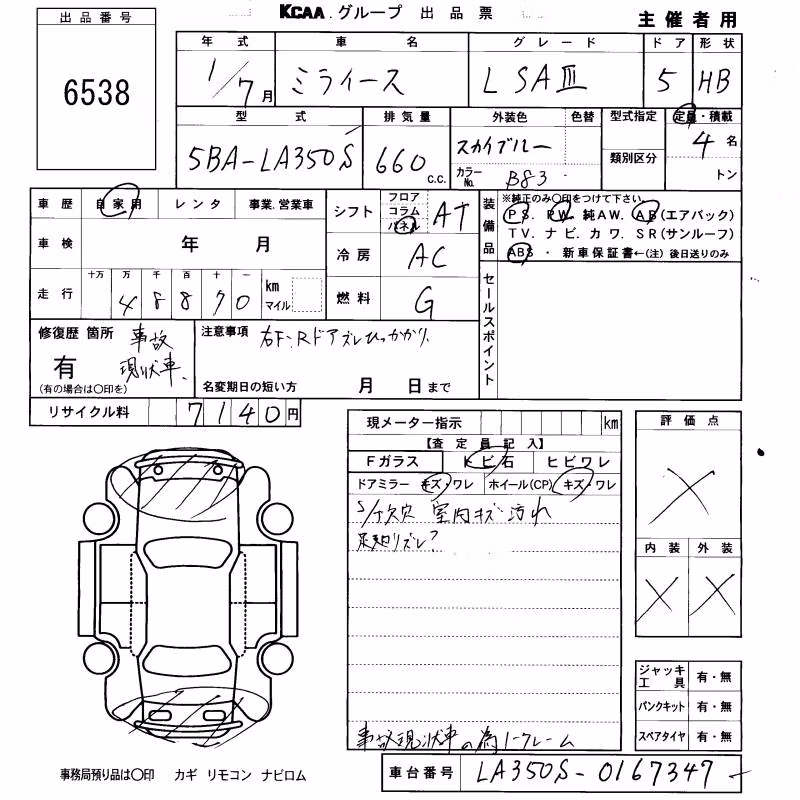 KCAA.グループ 出品票
主催者用
出品番号
6538
年式 車名 グレード ドア 形状
1/7月 ミライース L SAⅢ 5 HB
型式 排気量 外装色 色替 型式指定 定員・積載
5BA-LA350S 660 c.c. スカイブルー 4名
カラーNo. B83 類別区分 トン
車歴 自家用 レンタ 事業.営業車
シフト フロア コラム パネル AT
装備品 ※純正のみ〇印をつけて下さい。
PS. PW. 純AW. AB(エアバック)
TV. ナビ. カワ. SR(サンルーフ)
ABS ・ 新車保証書←(注) 後日送りのみ
車検 年 月
冷房 AC
走行 十万 万 千 百 十 一
48870 km マイル
燃料 G
セールスポイント
修復歴 箇所 事故
有 現状車.
(有の場合は〇印を)
注意事項 右F.Rドアズレひっかかり.
名変期日の短い方 月 日まで
リサイクル料 7140円
現メーター指示 km
【査定員記入】
Fガラス トビ石 ヒビワレ
ドアミラー キズ・ワレ ホイール(CP) キズ・ワレ
S/T欠穴 室内キズ汚れ
足廻りズレ?
事故現状車の為ノークレーム
評価点
×
内装 外装
× ×
ジャッキ 工具 有・無
パンクキット 有・無
スペアタイヤ 有・無
事務局預り品は〇印 カギ リモコン ナビロム
車台番号 LA350S-0167347